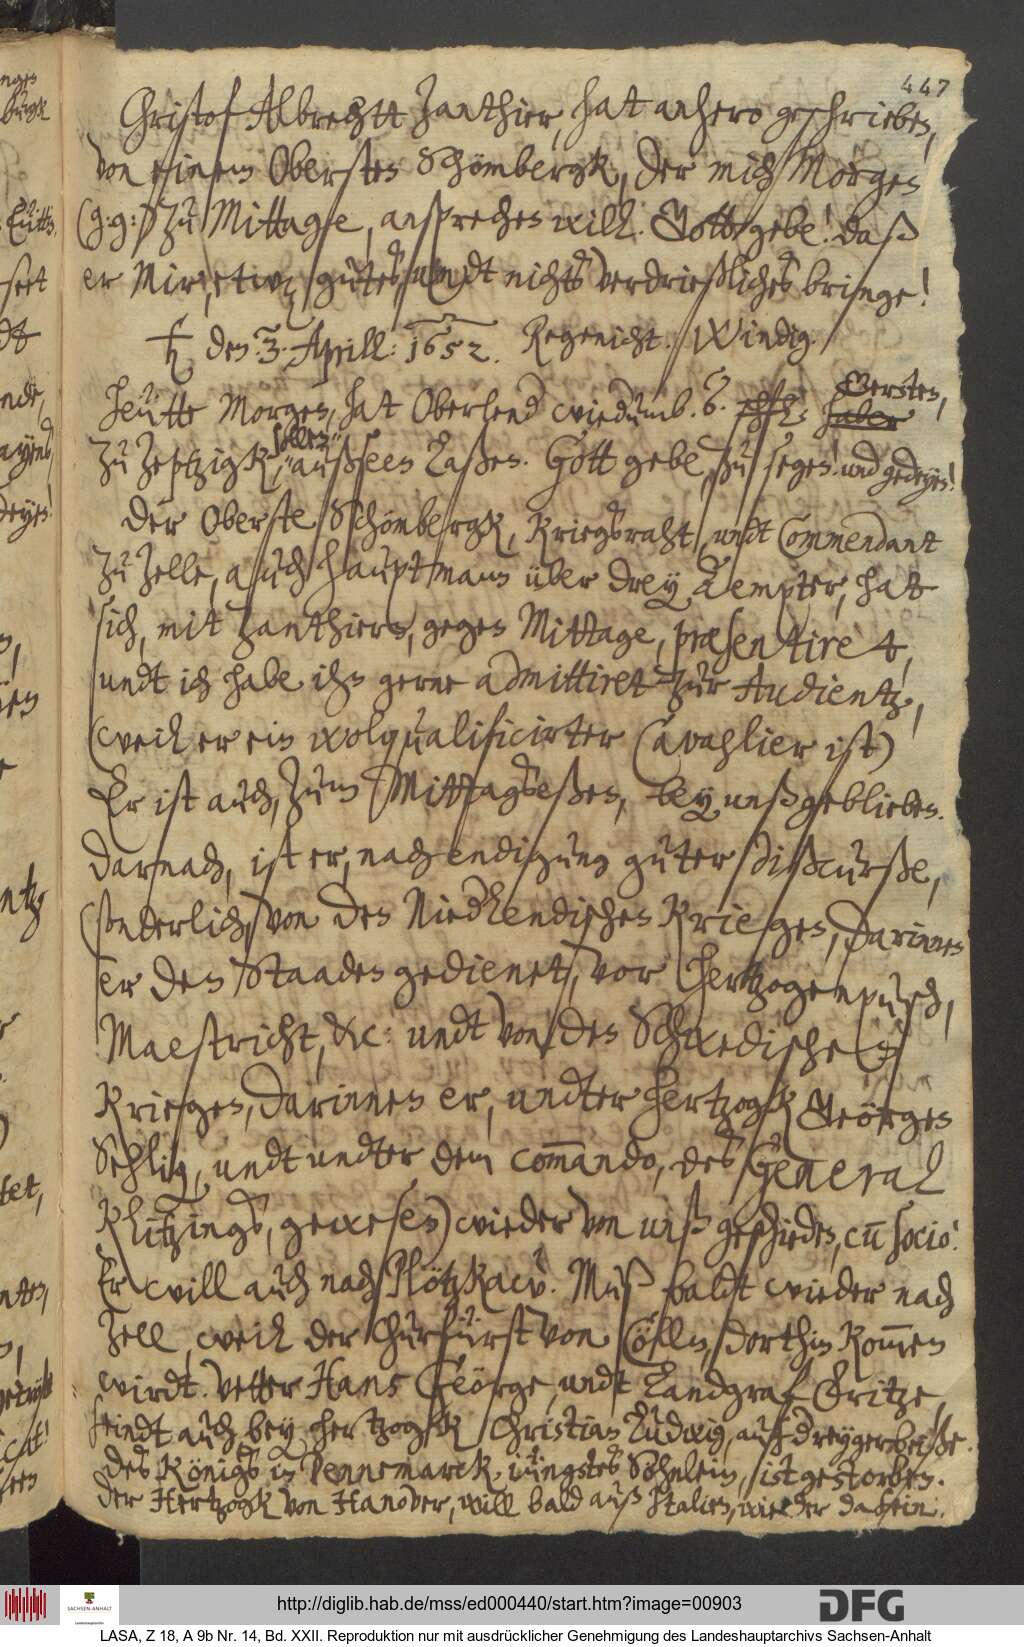 447
Christof Albrechtt Zanthier, hat anhero geschrieben,
von einem Obersten Schömbergk, der mich Morgen
(g: g:) zu Mittage, ansprechen will. Gott gebe! daß
er Mir, etwaß gutes, undt nichts verdrießliches bringe!
♄ den: 3. Aprill: 1652. Regenicht. Windig.
Heütte Morgen, hat Oberlend. wiedumb. 6. schfl: haber Gersten,
zu Zeptzigk, sollen außseen laßen. Gott gebe, zu segen! und gedeyen!
Der Oberste Schömbergk, Kriegsraht, undt Commendant
zu Zelle, auch Hauptmann über drey Aempter, hat
sich, mit Zanthiern, gegen Mittage, præsentiret,
undt ich habe ihn gerne admittiret zur Audientz,
(weil er ein wolqualificirter Cavahlier ist)
Er ist auch, zum Mittagsessen, bey unß geblieben.
Darnach, ist er, nach endigung guter Dißcurße,
(sonderlich, von den Niedlendischen Kriegen, darinnen
er den Staaden gedienet, vor Hertzogenpusch,
Maestricht, &c: undt von den Schwedischen
Kriegen, darinnen er, undter Hertzogk Geörgen
Sehlig, undt undter dem commando, des General
Klitzings, gewesen) wieder von unß geschieden, cũ socio.
Er will auch nach Plötzkaw. Muß baldt wieder nach
Zell, weil der Churfürst von Cölln, dorthin kommen
wirdt. Vetter Hans Geörge, undt Landgraf Fritze,
seindt auch bey Hertzogk Christian Ludwig, auf dreygerbeiße.
Des Königs in Dennemarck, iüngstes Söhnlein, ist gestorben.
Der Hertzogk von Hanover, will bald auß Italien, wieder da sein.
http://diglib.hab.de/mss/ed000440/start.htm?image=00903
SACHSEN-ANHALT
DFG
LASA, Z 18, A 9b Nr. 14, Bd. XXII. Reproduktion nur mit ausdrücklicher Genehmigung des Landeshauptarchivs Sachsen-Anhalt